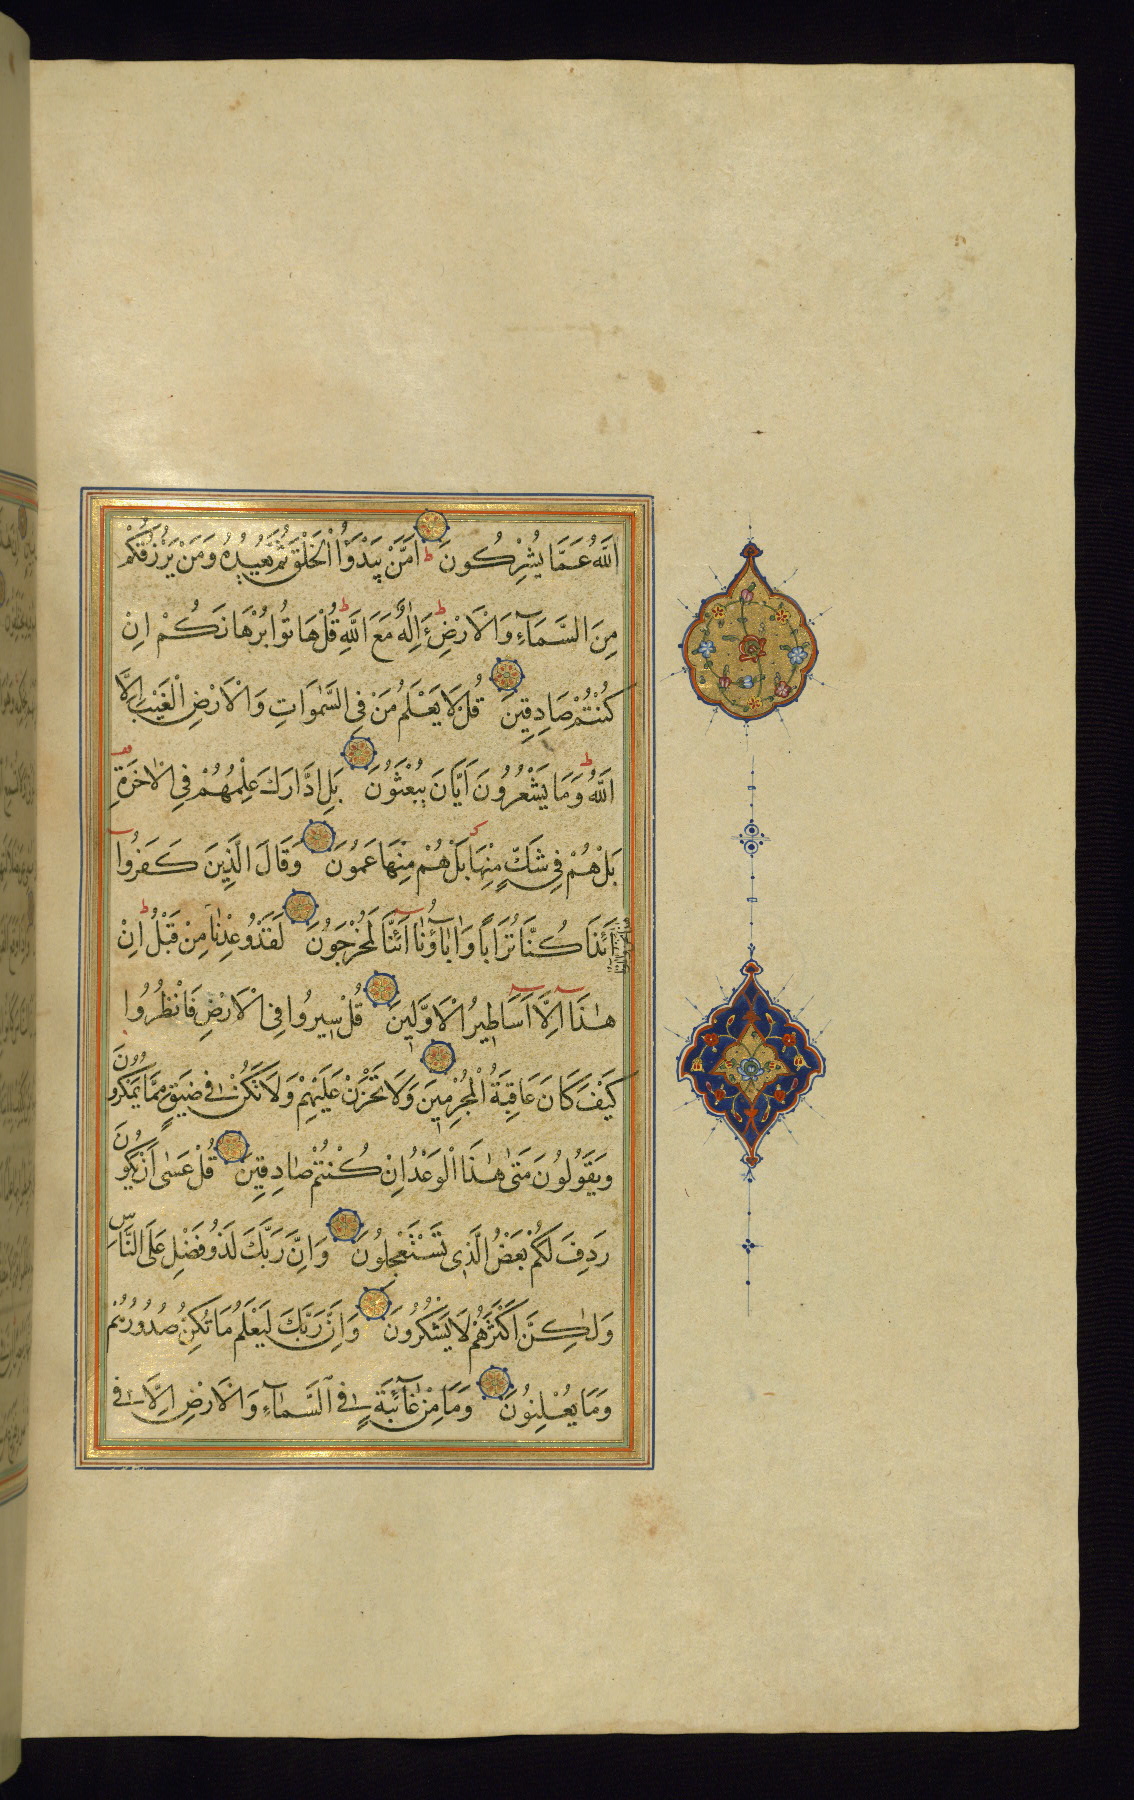 اللَّهُ عَمَّا يُشْرِكُونَ ط اَمَّنْ يَبْدَؤُا الْخَلْقَ ثُمَّ يُعِيدُهُ وَمَنْ يَرْزُقُكُمْ
مِنَ السَّمَآءِ وَالْاَرْضِ ط ءَاِلٰهٌ مَعَ اللَّهِ ط قُلْ هَاتُوا بُرْهَانَكُمْ اِنْ
كُنْتُمْ صَادِقِينَ قُلْ لَا يَعْلَمُ مَنْ فِى السَّمٰوَاتِ وَالْاَرْضِ الْغَيْبَ اِلَّا
اللَّهُ ط وَمَا يَشْعُرُونَ اَيَّانَ يُبْعَثُونَ بَلِ ادَّارَكَ عِلْمُهُمْ فِى الْاٰخِرَةِ
بَلْ هُمْ فِى شَكٍّ مِنْهَا بَلْ هُمْ مِنْهَا عَمُونَ وَقَالَ الَّذِينَ كَفَرُوا
ءَئِذَا كُنَّا تُرَابًا وَاٰبَآؤُنَا اَئِنَّا لَمُخْرَجُونَ لَقَدْ وُعِدْنَا مِنْ قَبْلُ ط اِنْ
هٰذَا اِلَّا اَسَاطِيرُ الْاَوَّلِينَ قُلْ سِيرُوا فِى الْاَرْضِ فَانْظُرُوا
كَيْفَ كَانَ عَاقِبَةُ الْمُجْرِمِينَ وَلَا تَحْزَنْ عَلَيْهِمْ وَلَا تَكُنْ فِى ضَيْقٍ مِمَّا يَمْكُرُونَ
وَيَقُولُونَ مَتٰى هٰذَا الْوَعْدُ اِنْ كُنْتُمْ صَادِقِينَ قُلْ عَسٰى اَنْ يَكُونَ
رَدِفَ لَكُمْ بَعْضُ الَّذِى تَسْتَعْجِلُونَ وَاِنَّ رَبَّكَ لَذُو فَضْلٍ عَلَى النَّاسِ
وَلٰكِنَّ اَكْثَرَهُمْ لَا يَشْكُرُونَ وَاِنَّ رَبَّكَ لَيَعْلَمُ مَا تُكِنُّ صُدُورُهُمْ
وَمَا يُعْلِنُونَ وَمَا مِنْ غَآئِبَةٍ فِى السَّمَآءِ وَالْاَرْضِ اِلَّا فِى